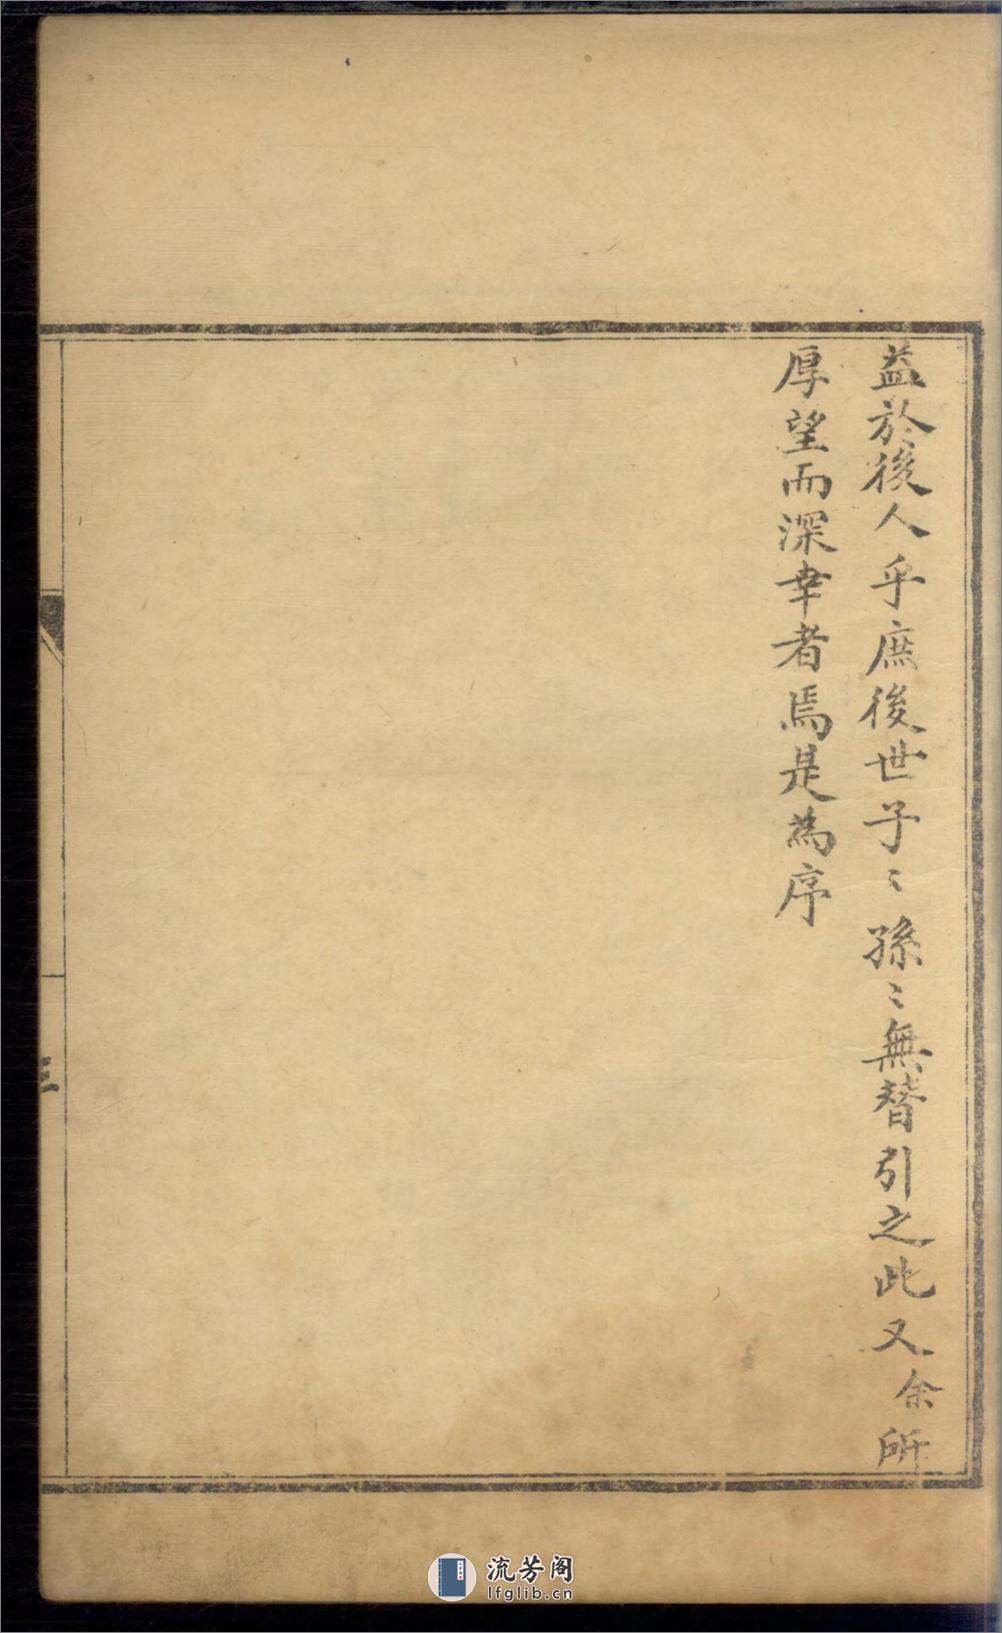 益於後人乎庶後世子〻孫〻無替引之此又余所
厚望而深幸者焉是為序
三
流芳阁
lfglib.cn